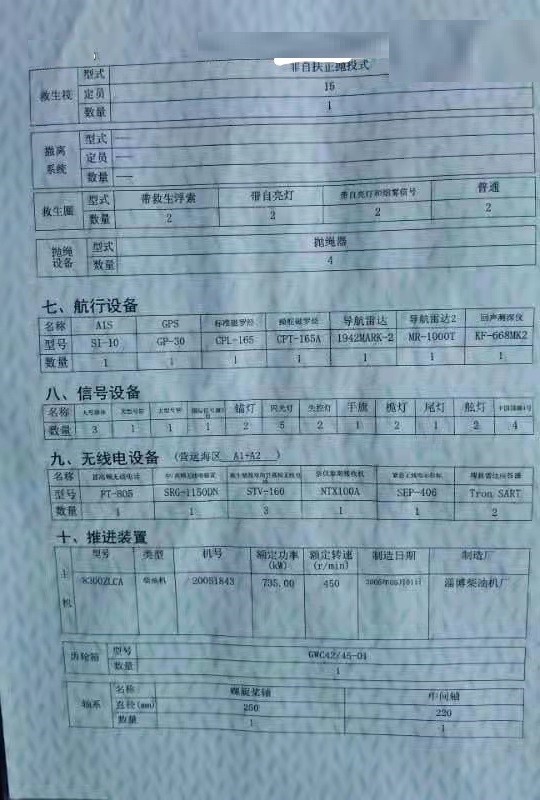 救生筏 型式 非自扶正抛投式
定员 15
数量 1
撤离系统 型式 —
定员 —
数量 —
救生圈 型式 带救生浮索 带自亮灯 带自亮灯和烟雾信号 普通
数量 2 2 2 2
抛绳设备 型式 抛绳器
数量 4
七、航行设备
名称 AIS GPS 标准磁罗经 操舵磁罗经 导航雷达 导航雷达2 回声测深仪
型号 SI-10 GP-30 CPL-165 CPT-165A 1942MARK-2 MR-1000T KF-668MK2
数量 1 1 1 1 1 1 1
八、信号设备
名称 锚灯 闪光灯 失控灯 手旗 桅灯 尾灯 舷灯
数量 3 1 1 1 2 5 2 1 2 1 2 4
九、无线电设备 (营运海区 A1+A2 )
名称 甚高频无线电话
型号 FT-805 SRG-1150DN STV-160 NTX100A SEP-406 Tron SART
数量 1 1 3 1 1 2
十、推进装置
主机 型号 类型 机号 额定功率(kW) 额定转速(r/min) 制造日期 制造厂
8300ZLCA 柴油机 20051843 735.00 450 淄博柴油机厂
齿轮箱 型号 GWC42/45-01
数量 1
轴系 名称 螺旋桨轴 中间轴
直径(mm) 250 220
数量 1 1